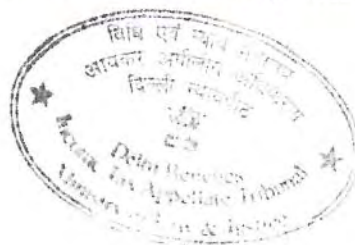 विधि एवं न्याय मंत्रालय
आयकर अपीलीय अधिकरण
दिल्ली न्यायपीठ
Delhi Benches
Income Tax Appellate Tribunal
Ministry of Law & Justice